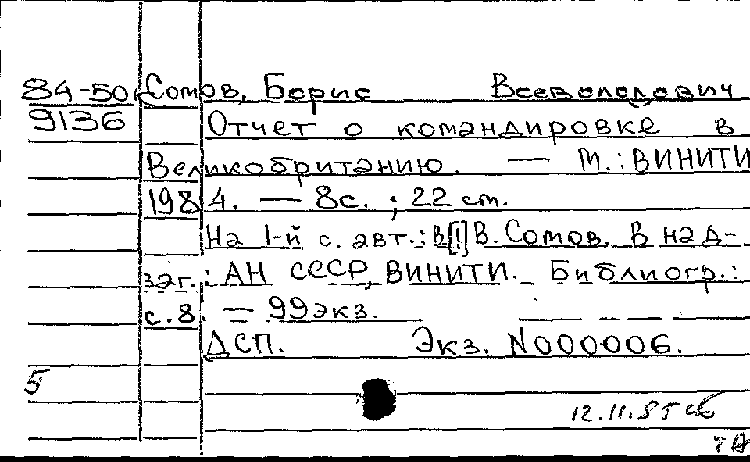 84-50 Сомов, Борис Всеволодович
9136 Отчет о командировке в
Великобританию. — М.: ВИНИТИ
1984. — 8с. ; 22 cm.
На 1-й с. авт.: В[!] В. Сомов. В над-
заг.: АН СССР, ВИНИТИ. Библиогр.:
с. 8. — 99 экз.
ДСП. Экз. N000006.
5
12.11.85